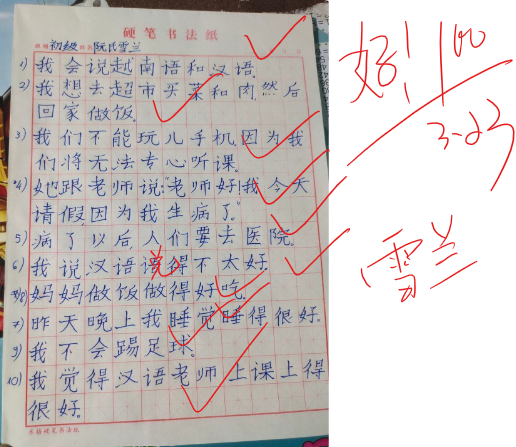 硬笔书法纸
班级初级姓名阮氏雪兰
1) 我会说越南语和汉语.
2) 我想去超市买菜和肉,然后
回家做饭.
3) 我们不能玩儿手机,因为我
们将无法专心听课.
4) 她跟老师说:"老师好!我今天
请假,因为我生病了."
5) 病了以后,人们要去医院.
6) 我说汉语语得不太好.
8) 妈妈做饭做得好吃.
7) 昨天晚上我睡觉睡得很好.
9) 我不会踢足球.
10) 我觉得汉语老师上课上得
很好.
好! 100
3-23
雪兰